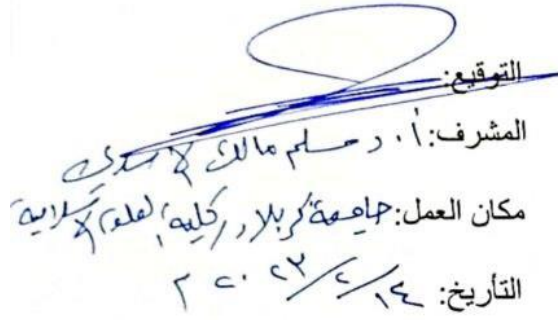 التوقيع:
المشرف: أ. د مسلم مالك الاسدي
مكان العمل: جامعة كربلاء / كلية العلوم الاسلامية
التأريخ: ١٤/٢/٢٠٢٣ م